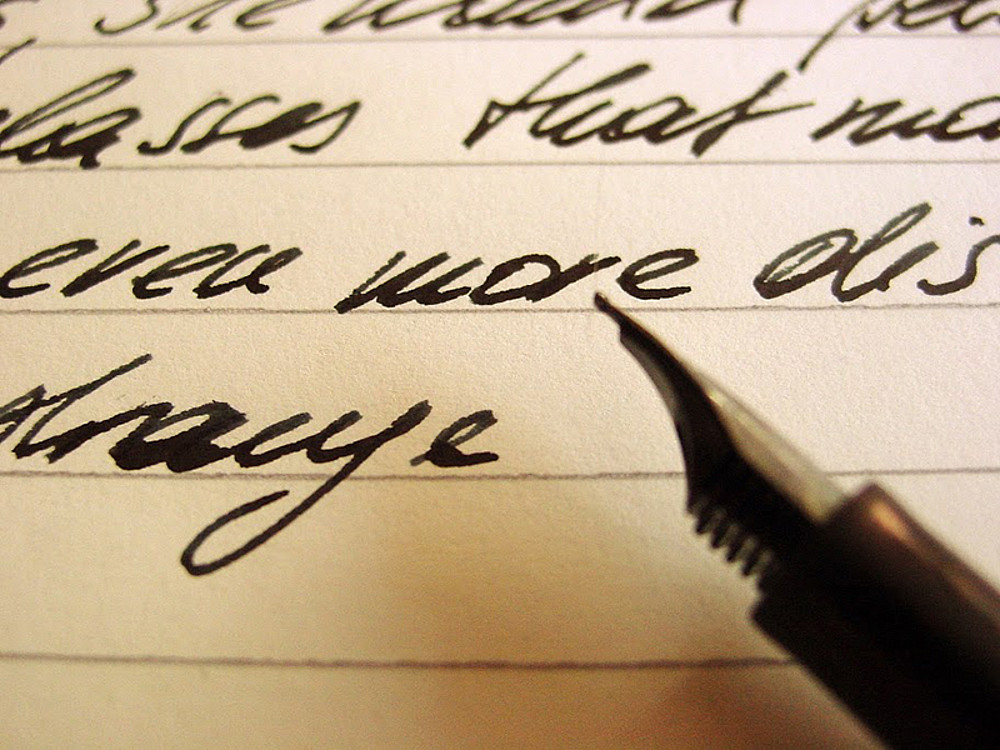 she
glasses that ma
even more dis
strange